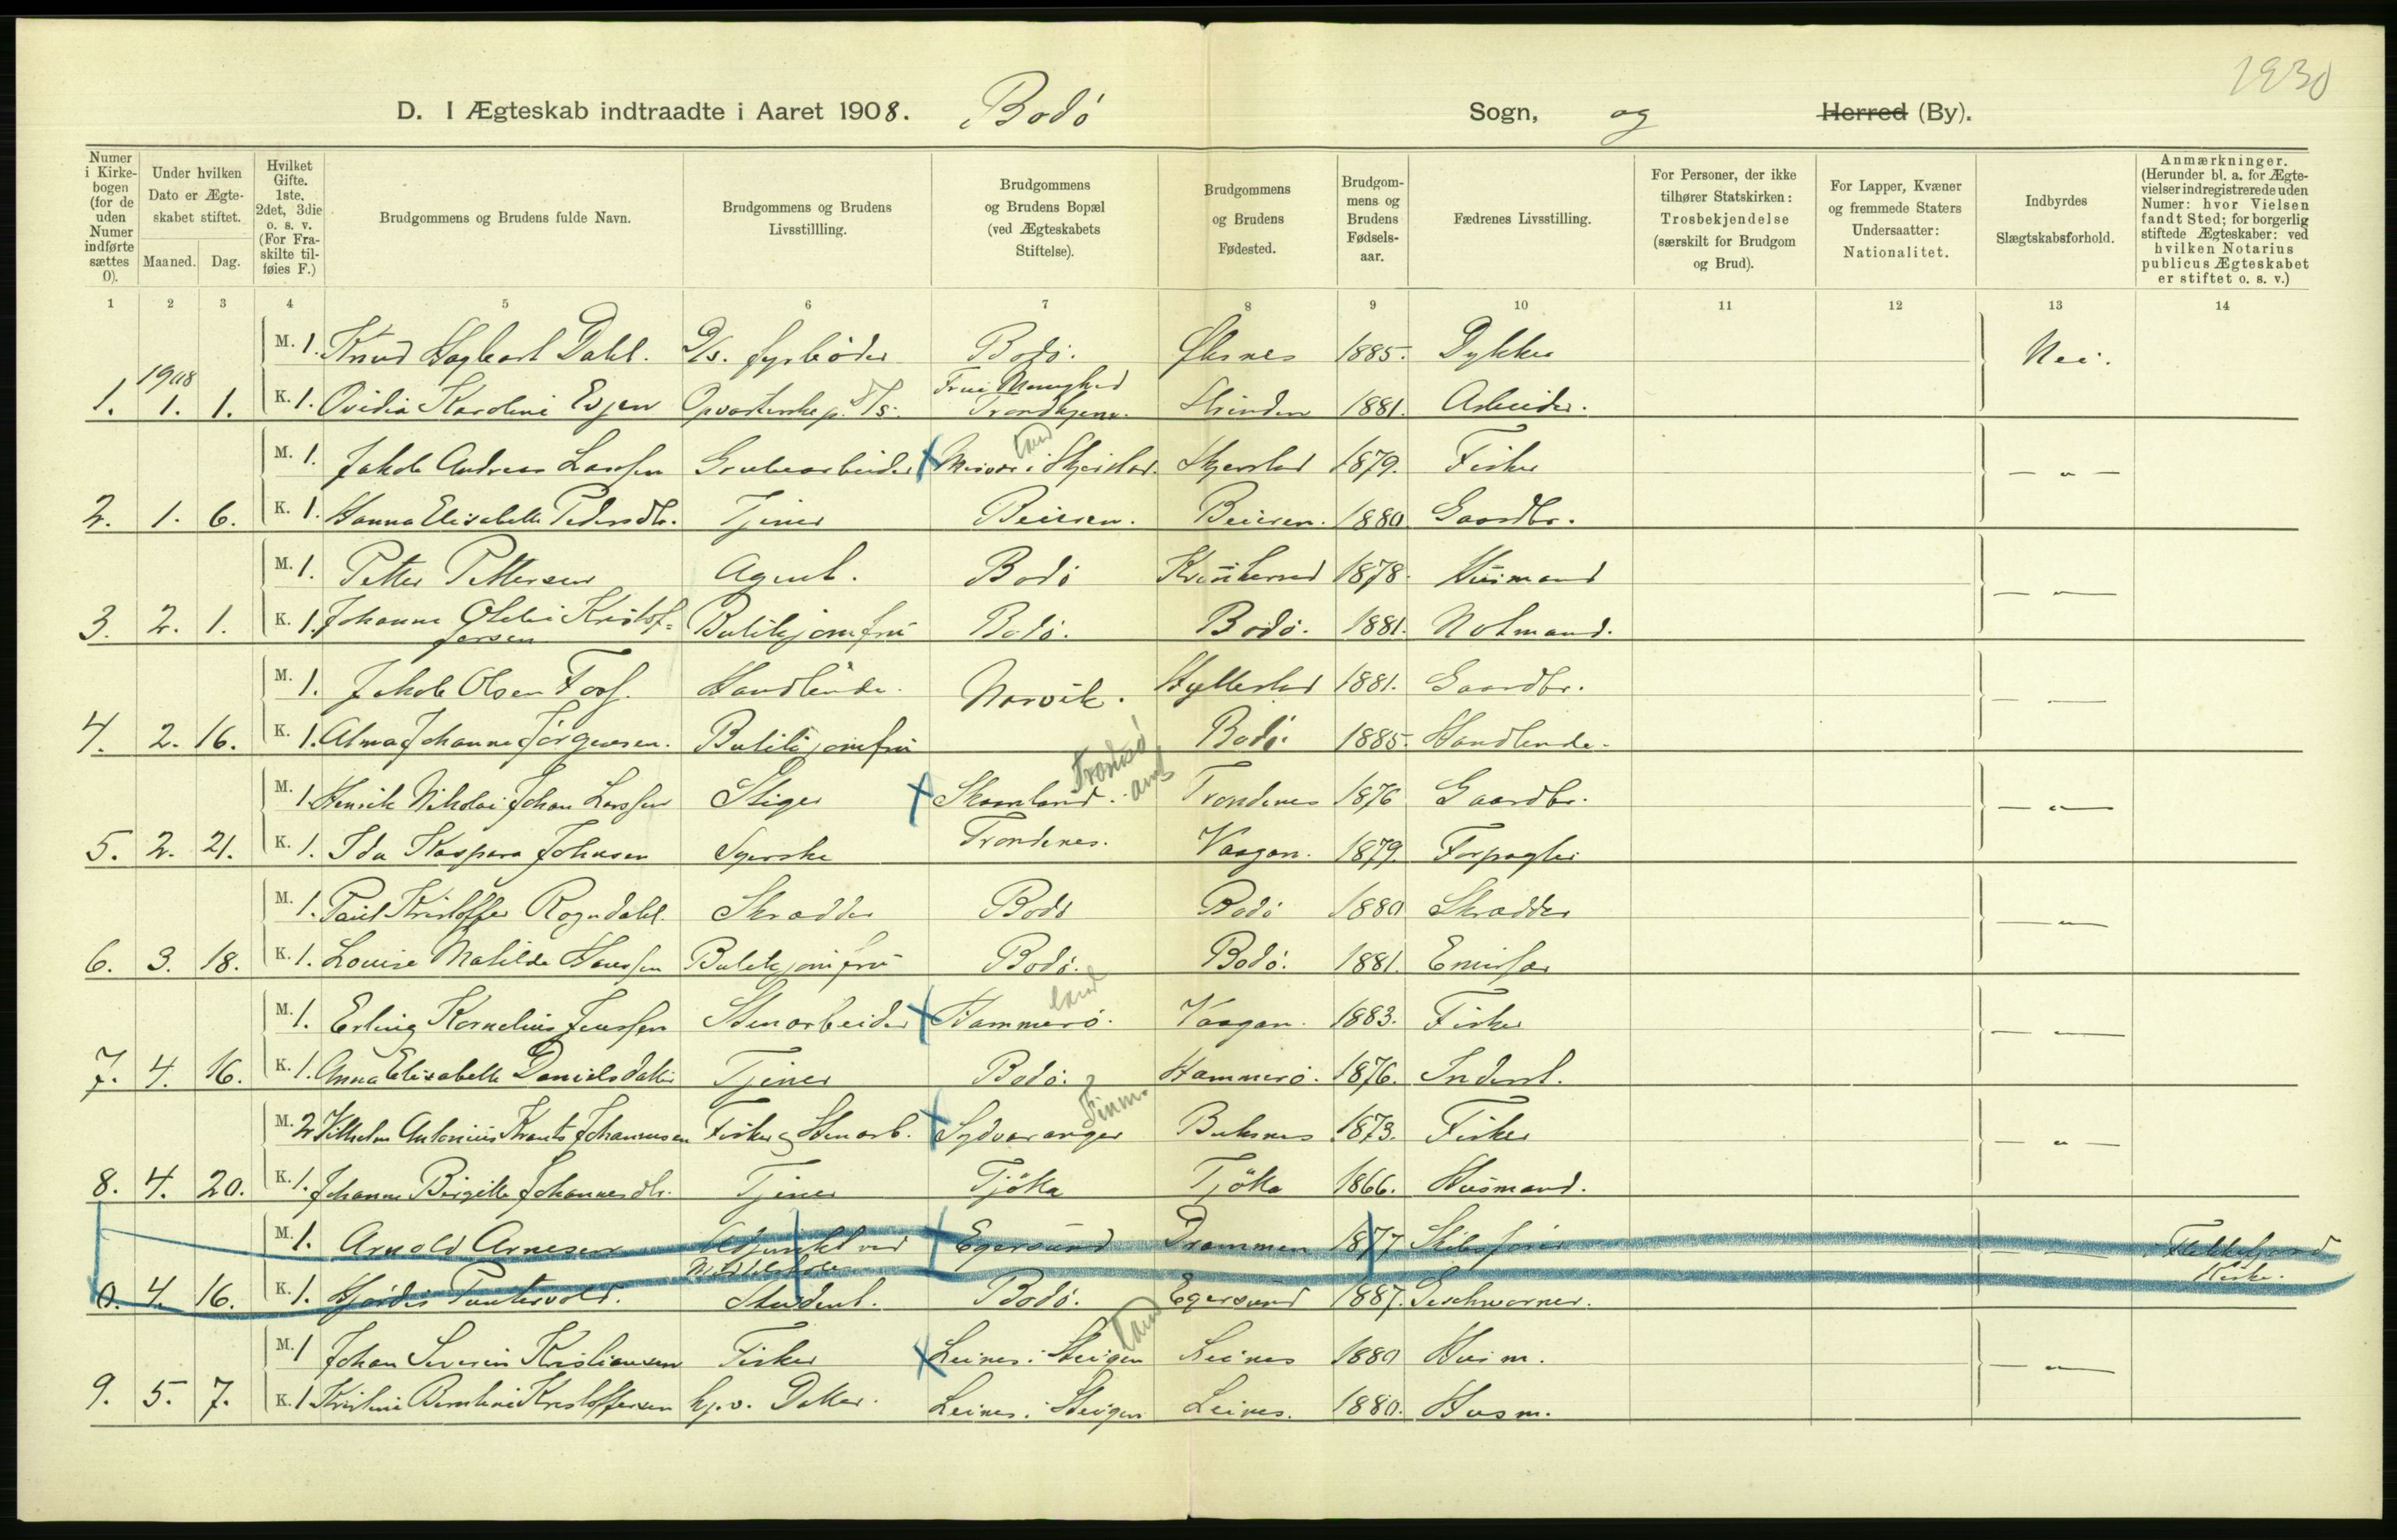 1930
D. I Ægteskab indtraadte i Aaret 1908. Bodö Sogn, og Herred (By).
Numer i Kirkebogen (for de uden Numer indførte sættes 0).
Under hvilken Dato er Ægteskabet stiftet.
Maaned. Dag.
Hvilket Gifte. 1ste, 2det, 3die o. s. v. (For Fraskilte tilføies F.)
Brudgommens og Brudens fulde Navn.
Brudgommens og Brudens Livsstillling.
Brudgommens og Brudens Bopæl (ved Ægteskabets Stiftelse).
Brudgommens og Brudens Fødested.
Brudgommens og Brudens Fødselsaar.
Fædrenes Livsstilling.
For Personer, der ikke tilhører Statskirken: Trosbekjendelse (særskilt for Brudgom og Brud).
For Lapper, Kvæner og fremmede Staters Undersaatter: Nationalitet.
Indbyrdes Slægtskabsforhold.
Anmærkninger. (Herunder bl. a. for Ægtevielser indregistrerede uden Numer: hvor Vielsen fandt Sted; for borgerlig stiftede Ægteskaber: ved hvilken Notarius publicus Ægteskabet er stiftet o. s. v.)
1 2 3 4 5 6 7 8 9 10 11 12 13 14
M. 1. Knud Hagbart Dahl. D/s. fyrbøder Bodö. Øksnes 1885. Dykker Nei.
1908
1. 1. 1. K. 1. Ovidia Karoline Evjen Opvarterske p. D/s. Frue Menighed Trondhjem. Strinden 1881. Arbeider.
M. 1. Jakob Andreas Larsen Grubearbeider Misvær i Skjerstad. land Skjerstad 1879. Fisker — " —
2. 1. 6. K. 1. Hanna Elisabeth Pedersdtr. Tjener Beieren. Beieren. 1880 Gaardbr.
M. 1. Petter Pettersen Agent. Bodö Kvinherred 1878. Husmand — —
3. 2. 1. K. 1. Johanna Kristoffersen Butikjomfru Bodö. Bodö. 1881. Notmand.
M. 1. Jakob Olsen Foss. Handlende. Narvik. Hyllestad 1881. Gaardbr. — —
4. 2. 16. K. 1. Alma Johanne Jörgensen. Butikjomfru Bodö. 1885. Handlende.
M. 1. Henrik Nikolai Johan Larssen Stiger Skaanland. Tromsö amt Trondenes 1876 Gaardbr. — " —
5. 2. 21. K. 1. Ida Kaspara Johnsen Syerske Trondenes. Vaagan. 1879. Forpagter
M. 1. Paul Kristoffer Rogndahl. Skrædder Bodö Bodö 1880 Skrædder — " —
6. 3. 18. K. 1. Louise Matilde Hanssen Butikjomfru Bodö. Bodö. 1881. Emissær
M. 1. Erling Kornelius Jenssen Stenarbeider Hammerö. land Vaagan. 1883. Fisker — —
7. 4. 16. K. 1. Anna Elisabeth Danielsdatter Tjener Bodö. Hammerö. 1876. Inderst.
M. 2 Vilhelm Antonius Krants Johannesen Fisker & Stenarb. Sydvaranger Finm. Buksnes 1873. Fisker — " —
8. 4. 20. K. 1. Johanna Birgitte Johannesdtr. Tjener Tjötta Tjötta 1866. Husmand.
M. 1. Arnold Arnesen Adjunkt ved Middelskolen Egersund Drammen 1877 Skibsförer — — Flekkefjord Kirke.
0. 4. 16. K. 1. Hjördis Puntervold. Student. Bodö. Egersund 1887. Geschworner.
M. 1 Johan Severin Kristiansen Fisker Leines i Steigen land Leines 1880 Husm. — " —
9. 5. 7. K. 1. Kristine Kristoffersen hj.v. Datter. Leines i Steigen Leines. 1880. Husm.